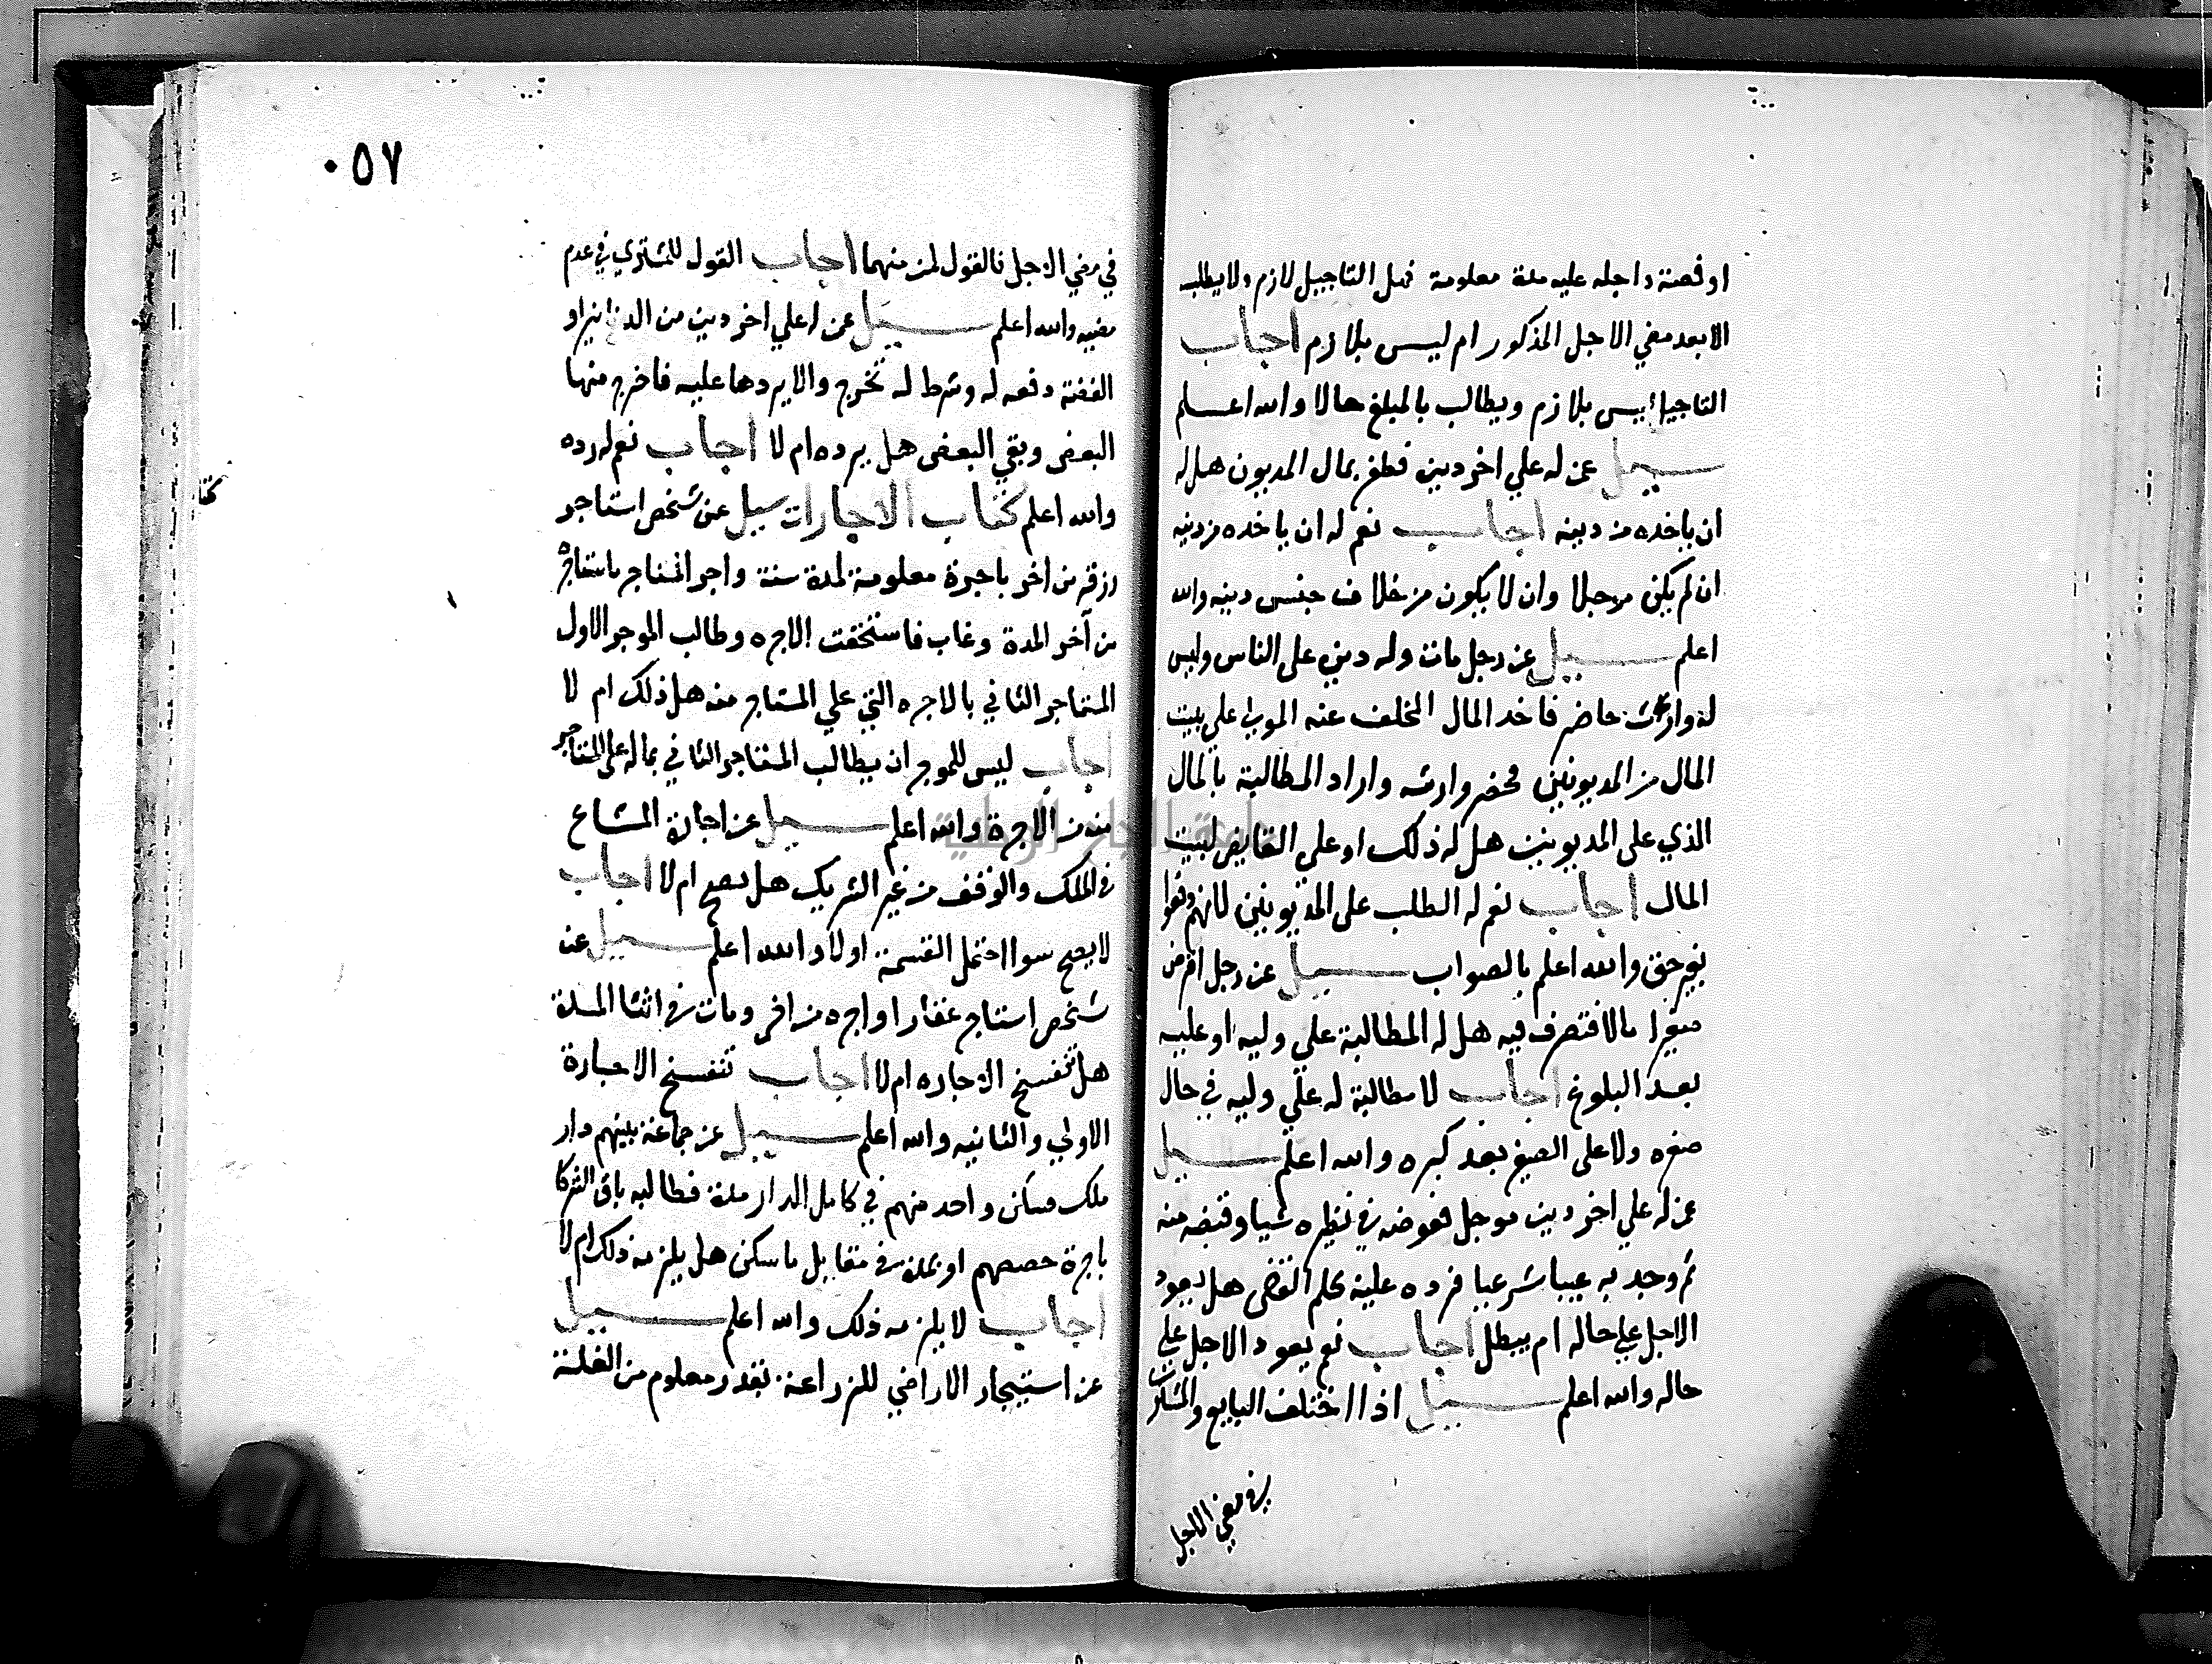 او فضة واجله عليه مدة معلومة فهل التاجيل لازم ولا يطلب
الا بعد مضي الاجل المذكور ام ليس بلازم اجاب
التاجيل ليس بلازم ويطالب بالمبلغ حالا والله اعلم
سيل عن له علي اخر دين فظفر بمال المديون هل له
ان ياخده من دينه اجاب نعم له ان ياخده من دينه
ان لم يكن موجلا وان لا يكون من خلاف جنس دينه والله
اعلم سيل عن رجل مات وله دين على الناس وليس
له وارث حاضر فاخد المال المخلف عنه الموكل علي بيت
المال من المديونين فحضر وارثه واراد المطالبة بالمال
الذي على المديونين هل له ذلك او على القابض لبيت
المال اجاب نعم له الطلب على المديونين لانهم دفعوا
بغير حق والله اعلم بالصواب سيل عن رجل اقرض
صغيرا مالا فتصرف فيه هل له المطالبة علي وليه او عليه
بعد البلوغ اجاب لا مطالبة له علي وليه في حال
صغره ولا على الصغير بعد كبره والله اعلم سيل
عن له علي اخر دين موجل فعوضه في نظيره شيا وقبضه منه
ثم وجد به عيبا شرعيا فرده عليه بحكم القاضي هل يعود
الاجل علي حاله ام يبطل اجاب نعم يعود الاجل علي
حاله والله اعلم سيل اذا اختلف البايع والمشتري
في مضي الاجل
٠٥٧
في مضي الاجل فالقول لمن منهما اجاب القول للمشتري في عدم
مضيه والله اعلم سيل عن له علي اخر دين من الدنانير او
الفضة دفعه له وشرط له تخرج والا يردها عليه فاخرج منها
البعض وبقي البعض هل يرده ام لا اجاب نعم له رده
والله اعلم كتاب الاجارات سيل عن شخص استاجر
رزقه من اخر باجرة معلومة لمدة سنة واجر المستاجر ما استاجره
من آخر المدة وغاب فاستحقت الاجره وطالب الموجر الاول
المستاجر الثاني بالاجره التي علي المستاجر منه هل ذلك ام لا
اجاب ليس للموجر ان يطالب المستاجر الثاني بماله على المستاجر
منه من الاجرة والله اعلم سيل عن اجارة المشاع
في الملك والوقف من غير الشريك هل يصح ام لا اجاب
لا يصح سوا احتمل القسمة او لا والله اعلم سيل عن
شخص استاجر عقارا واجره من اخر ومات في اثنا المدة
هل تنفسخ الاجاره ام لا اجاب تنفسخ الاجارة
الاولي والثانيه والله اعلم سيل عن جماعة بينهم دار
ملك فسكن واحد منهم في كامل الدار مدة فطالبه باقي الشركا
باجرة حصصهم او بمدة في مقابل ما سكن هل يلزمه ذلك ام لا
اجاب لا يلزمه ذلك والله اعلم سيل
عن استيجار الاراضي للزراعة بقدر معلوم من الغلة
جامعة النجاح الوطنية